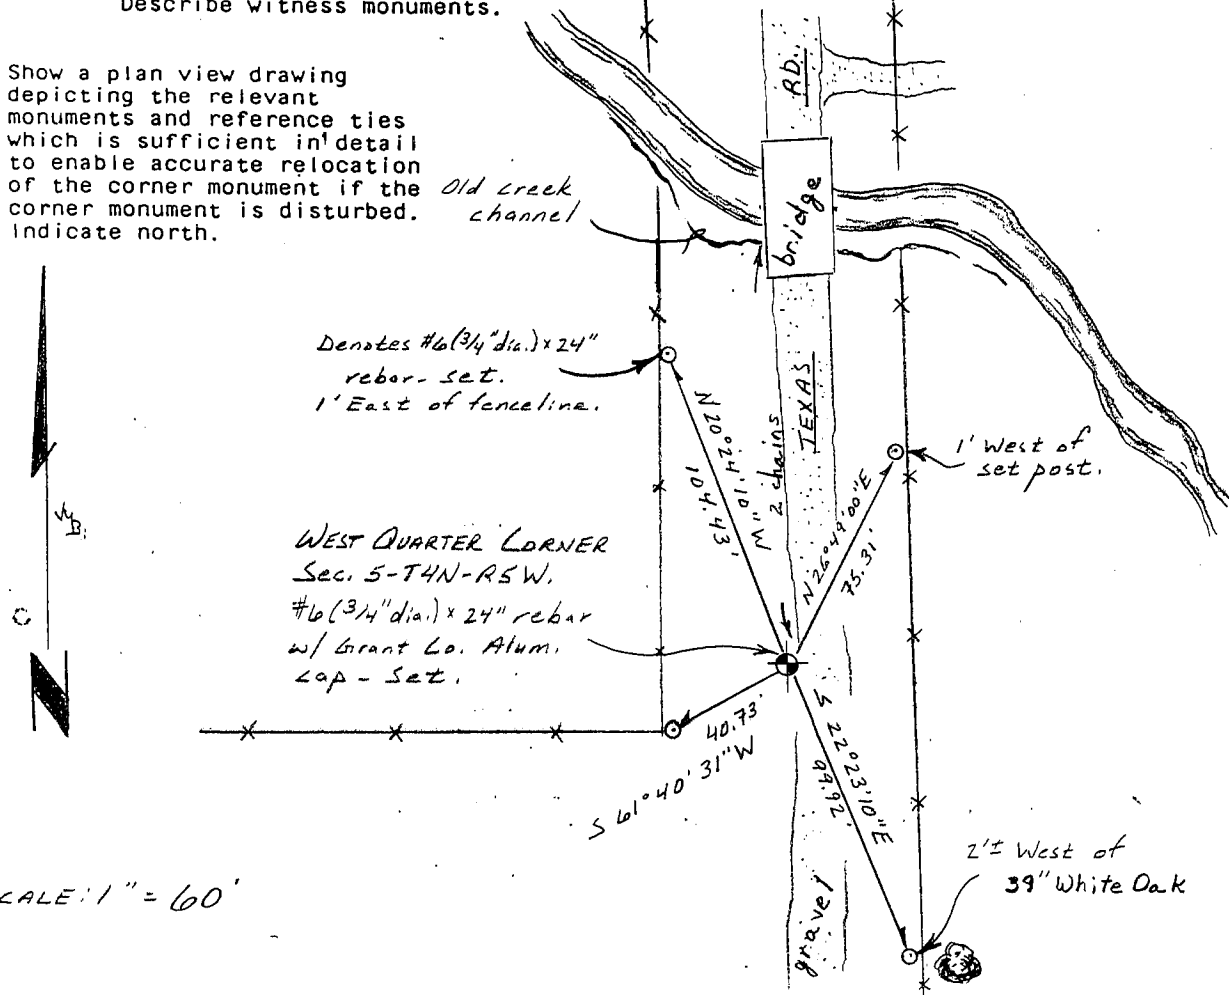 Describe witness monuments.
Show a plan view drawing
depicting the relevant
monuments and reference ties
which is sufficient in detail
to enable accurate relocation
of the corner monument if the
corner monument is disturbed.
Indicate north.
Old creek
channel
RD.
bridge
Denotes #6 (3/4" dia.) x 24"
rebar - set.
1' East of fenceline.
TEXAS
2 chains
N 20° 24' 10" W
104.43'
N 26° 49' 00" E
75.31'
1' West of
set post.
WEST QUARTER CORNER
Sec. 5-T4N-R5W.
#6 (3/4" dia.) x 24" rebar
w/ Grant Co. Alum.
cap - Set.
N
40.73'
S 61° 40' 31" W
S 22° 23' 10" E
99.92'
gravel
2'± West of
39" White Oak
CALE: 1" = 60'